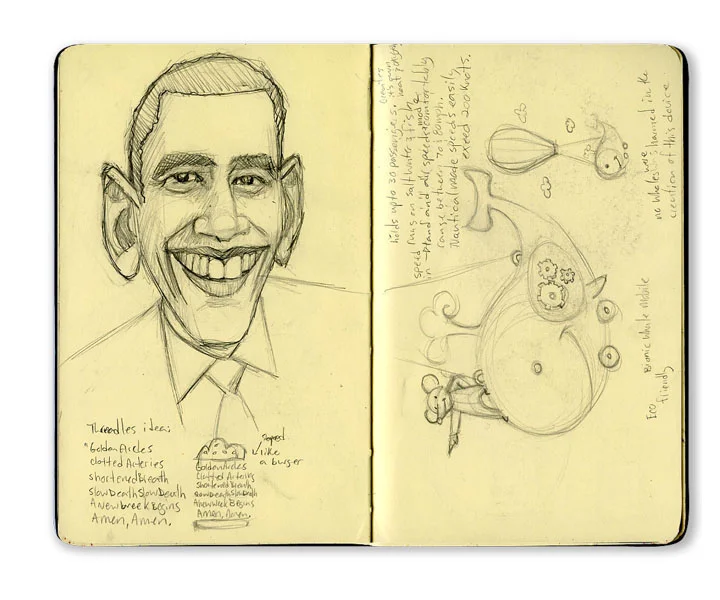 Threadles idea:
"GoldenArcles
clotted Arteries
shortened Breath
slowDeathSlowDeath
A new week Begins
Amen, Amen.
shaped
like
a burger
GoldenArcles
Clotted Arteries
shortenedBreath
slowDeathSlowDeath
A new week Begins
Amen, Amen.
holds up to 30 passengers.
speed runs on salt water & fish
in land and air speed comfortably
range between 70 180mph.
Nautical mode speeds easily
exceed 200 Knots.
no whales were harmed in the
creation of this device
Bionic Whale Mobile
Eco
friendly